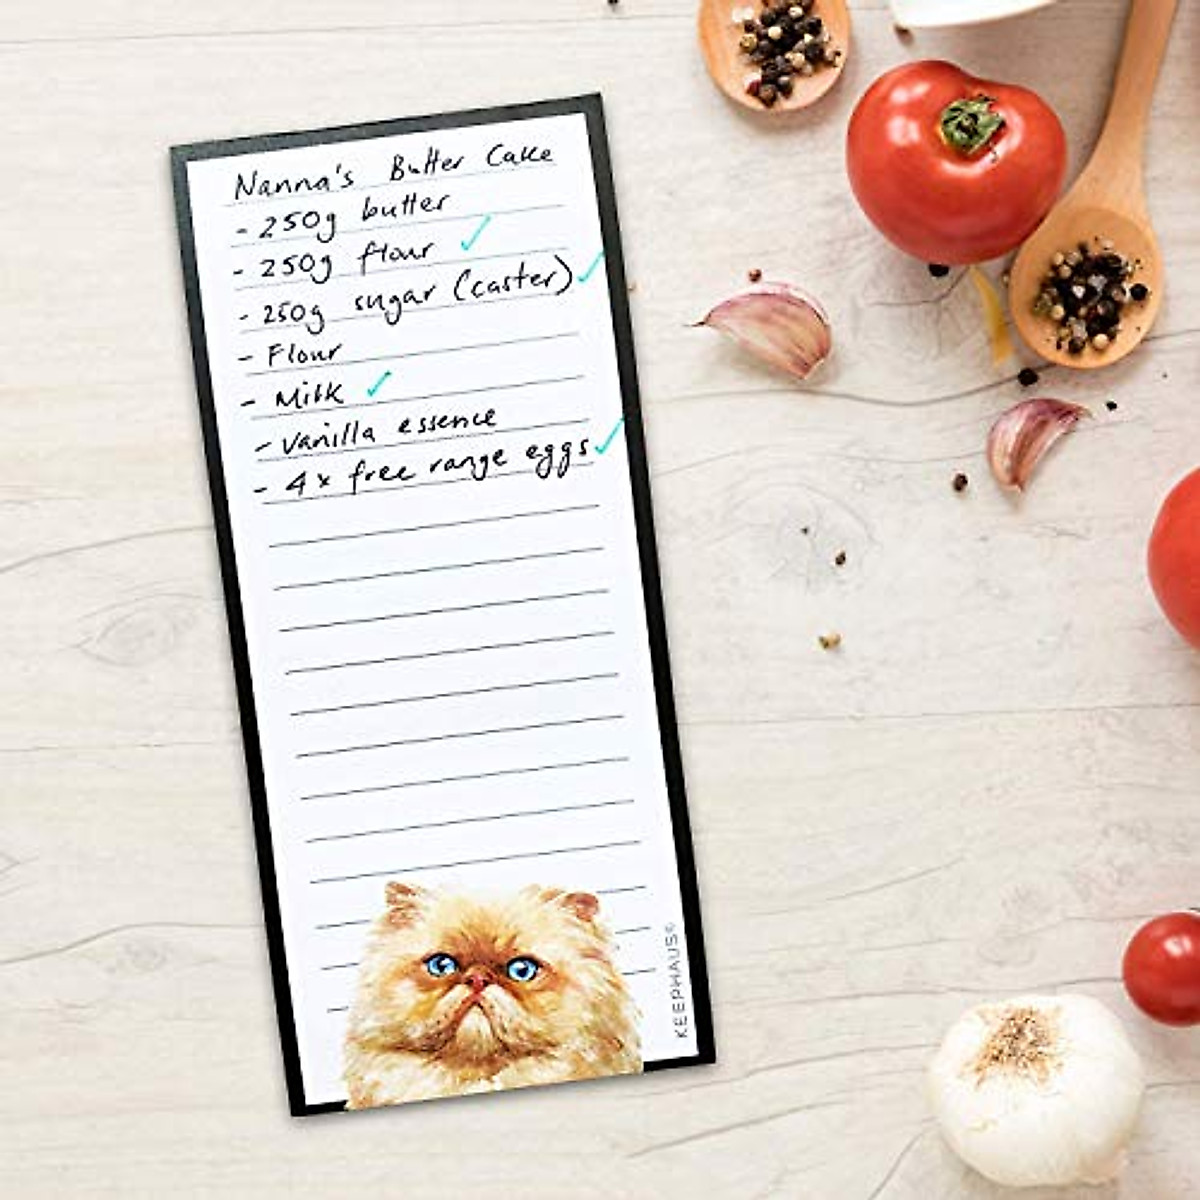 Nanna's Butter Cake
- 250g butter
- 250g flour ✓
- 250g sugar (caster) ✓
- Flour
- Milk ✓
- vanilla essence
- 4x free range eggs ✓
KEEPHAUS©